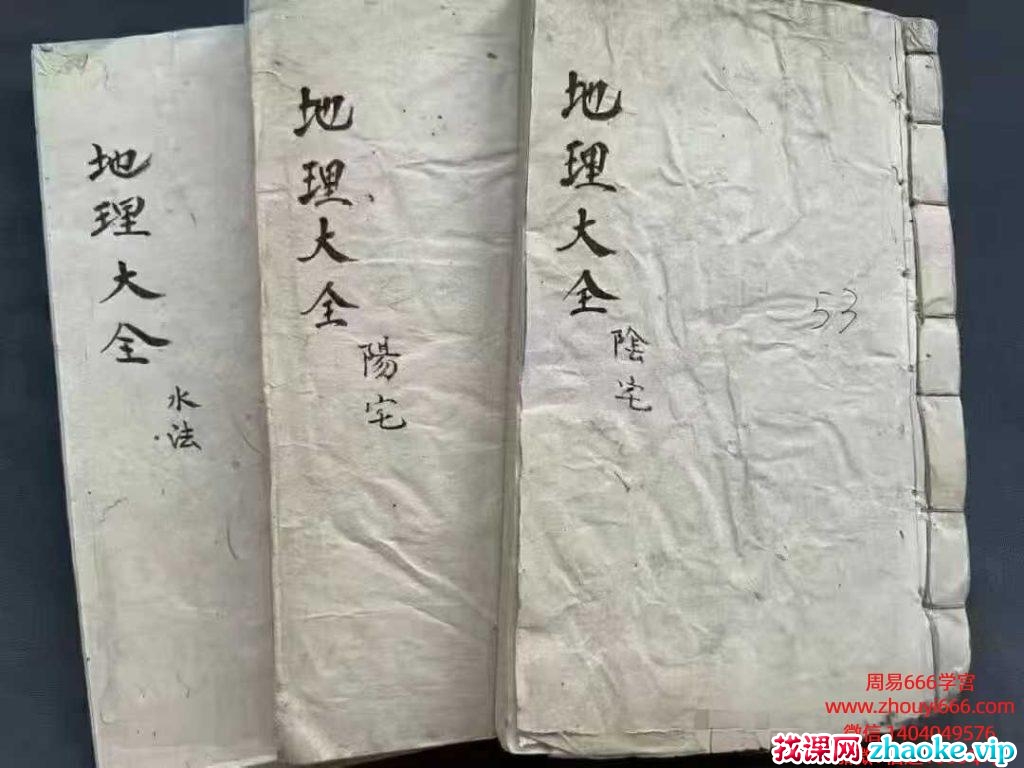 地理大全
水法
地理大全
陽宅
地理大全
陰宅
53
周易666学宫
www.zhouyi666.com
微信1404049576
找课网zhaoke.vip